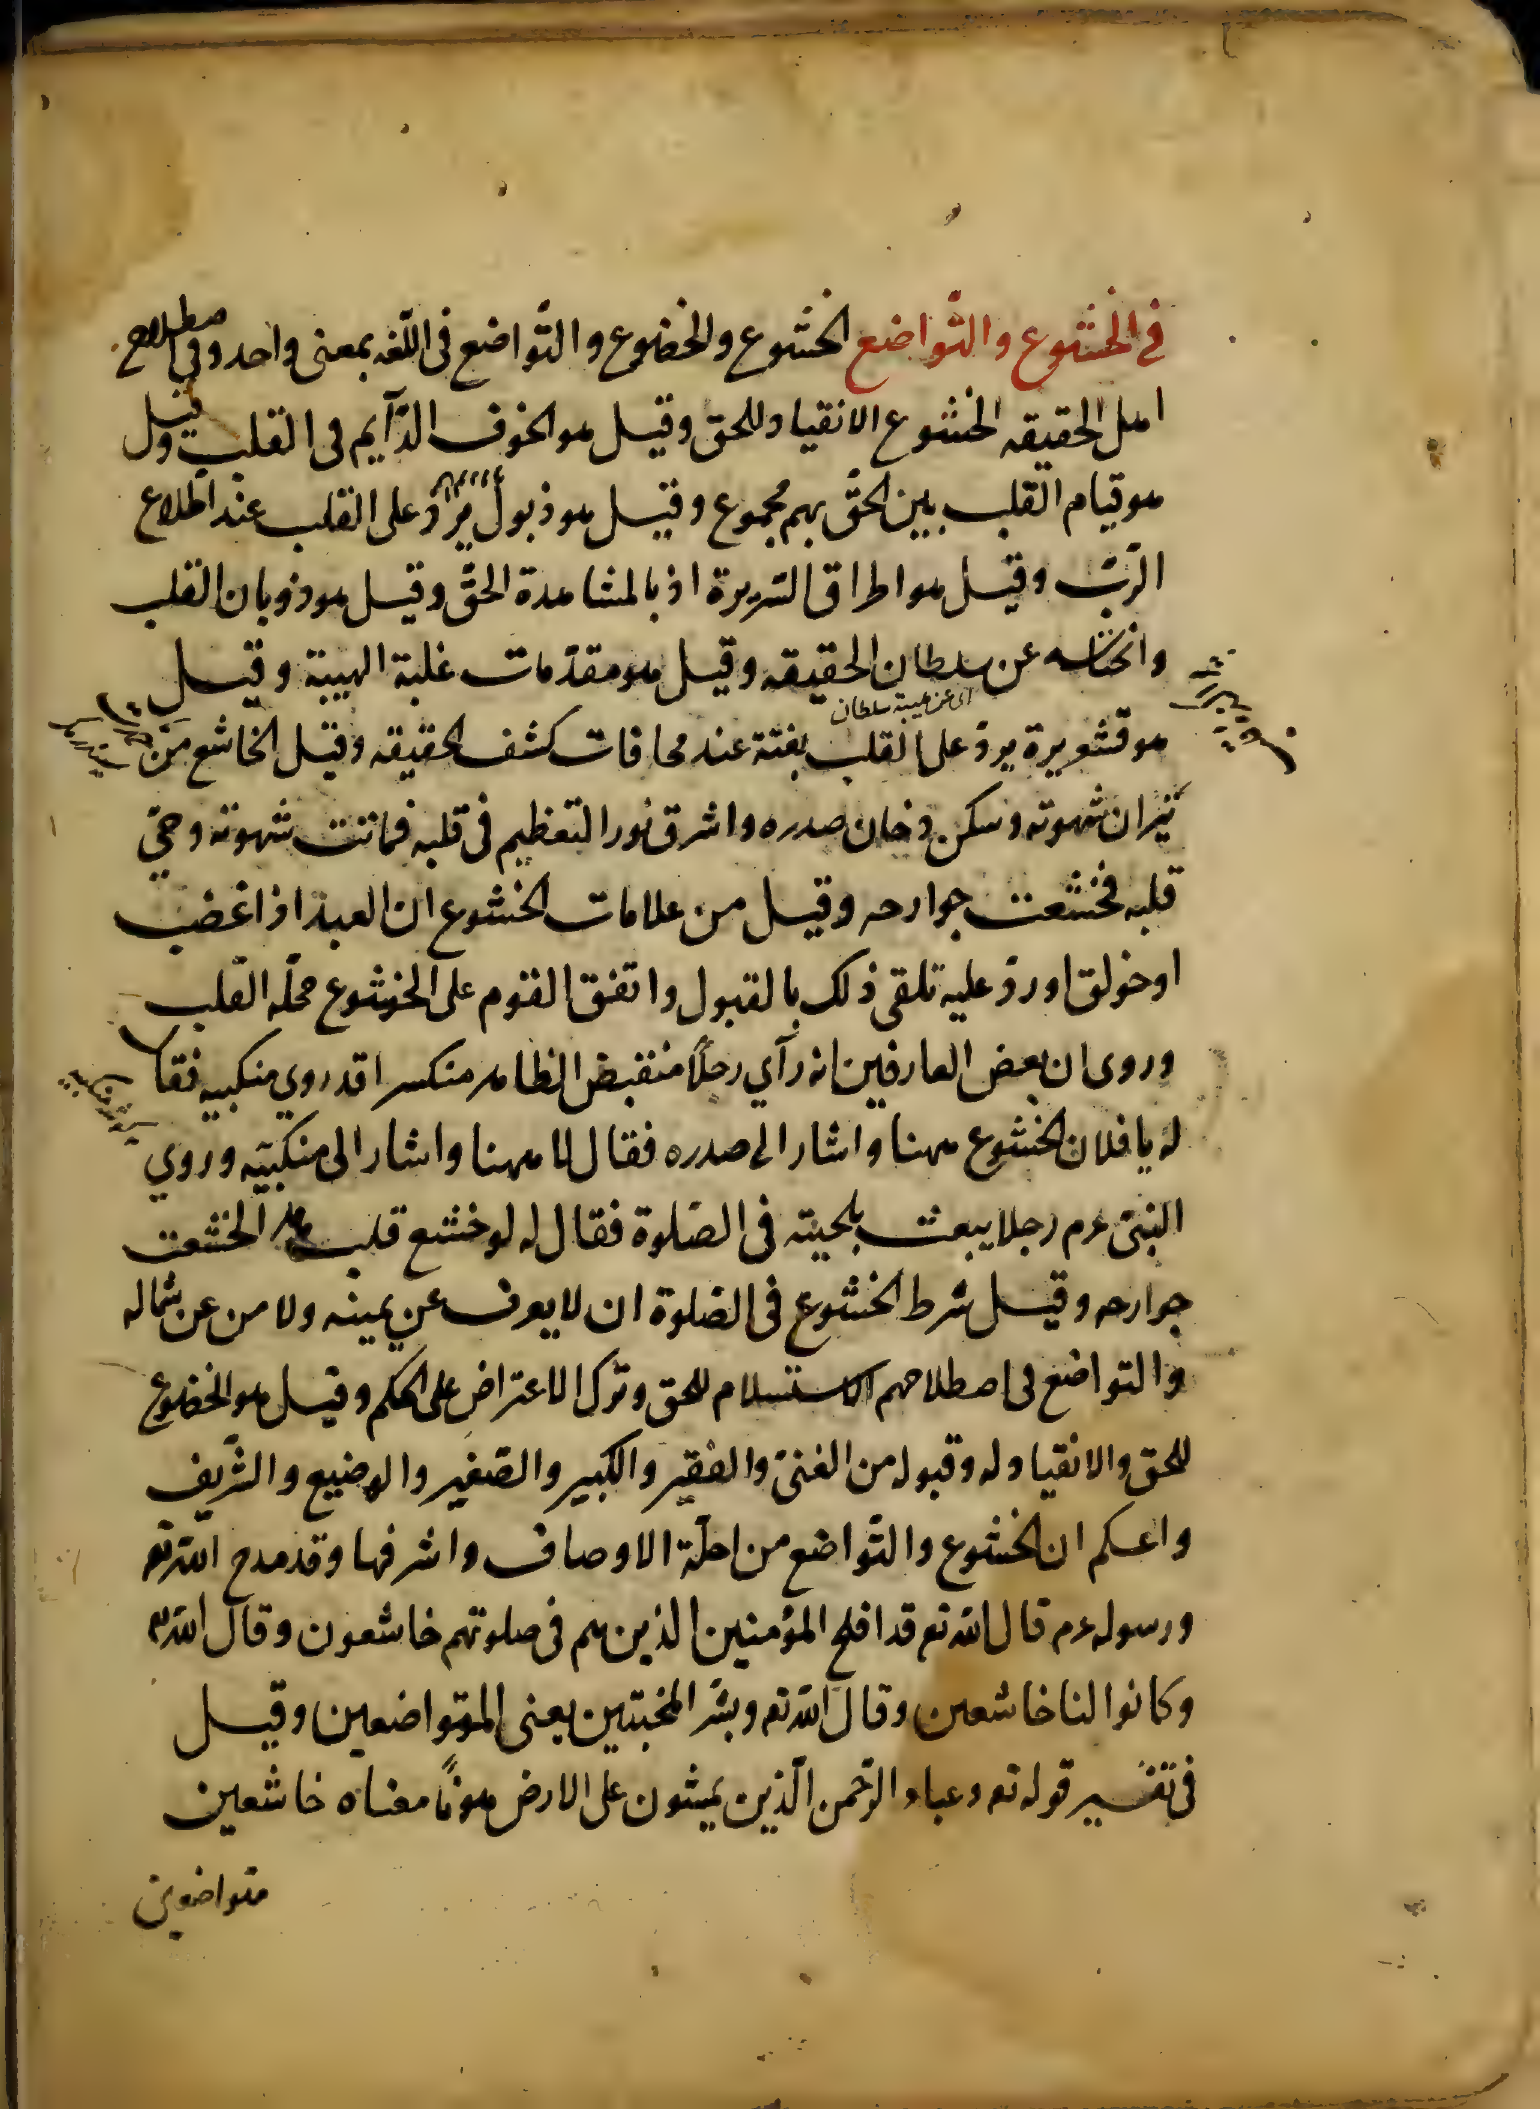 في الخشوع والتّواضع الخشوع والخضوع والتّواضع في اللّغه بمعنى واحد وفي اصطلاح
اهل الحقيقه الخشوع الانقياد للحق وقيل هو الخوف الدّآيم في القلب وقيل
هو قيام القلب بين الحقّ بهم مجموع وقيل هو ذبول يرد على القلب عند اطّلاع
الرّبّ وقيل هو اطراق السّريرة اذ بالمشاهدة الحقّ وقيل هو ذوبان القلب
وانخناسه عن سلطان الحقيقه وقيل هو مقدّمات غلبة الهيبة وقيل
اى عن هيبة سلطان
هو قشعريرة يردّ على القلب بغتة عند مجافات كشف الحقيقه وقيل الخاشع من خمد
نيران شهوته وسكن دخان صدره واشرق نور التعظيم في قلبه فماتت شهوته وحيّ
قلبه فخشعت جوارحه وقيل من علامات الخشوع ان العبد اذا غضب
او خولق او ردّ عليه تلقى ذلك بالقبول واتفق القوم على الخشوع محلّه القلب
وروى ان بعض العارفين انه رآي رجلاً منقبض الظاهر منكسرا قد روي منكبيه فقال
له يا فلان الخشوع ههنا واشار الى صدره فقال لا ههنا واشار الى منكبيّه وروي
النبىّ عرم رجلا يبعث بلحيته في الصّلوة فقال له لو خشع قلب هذا لخشعت
جوارحه وقيل شرط الخشوع في الصّلوة ان لا يعرف عن يمينه ولا من عن شماله
والتواضع في اصطلاحهم الاستسلام للحق وترك الاعتراض على الحكم وقيل هو الخضوع
للحق والانقياد له وقبوله من الغنىّ والفقير والكبير والصّغير والوضيع والشّريف
واعلم ان الخشوع والتّواضع من احلّة الاوصاف واشرفها وقد مدح اللّه تع
ورسوله عرم قال اللّه تع قد افلح المؤمنين الذين هم في صلوتهم خاشعون وقال اللّه تع
وكانوا لنا خاشعين وقال اللّه تع وبشّر المخبتين يعنى المتواضعين وقيل
في تفسير قوله تع وعباد الرّحمن الّذين يمشون على الارض هوناً معناه خاشعين
متواضعين